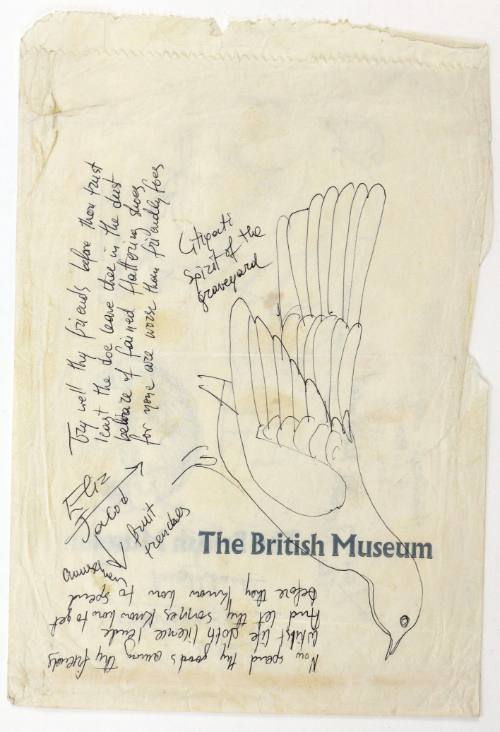 Try well thy friends before thou trust
least the doe leave thee in the dust
beware of fained flattering shoes
for none are worse then friendly foes
Citipati
Spirits of the
graveyard
Eliz
Jacob
fruit
trenchers
The British Museum
Now spend thy goods among thy friends
Whilst life doth licence lende
And let thy sonnes know how to get
before they know how to spend